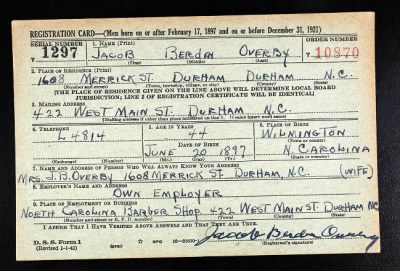 REGISTRATION CARD—(Men born on or after February 17, 1897 and on or before December 31, 1921)
SERIAL NUMBER 1. NAME (Print) ORDER NUMBER
1297 JACOB BERDEN OVERBY T 10870
(First) (Middle) (Last)
2. PLACE OF RESIDENCE (Print)
1608 MERRICK ST. DURHAM DURHAM N.C.
(Number and street) (Town, township, village, or city) (County) (State)
[THE PLACE OF RESIDENCE GIVEN ON THE LINE ABOVE WILL DETERMINE LOCAL BOARD
JURISDICTION; LINE 2 OF REGISTRATION CERTIFICATE WILL BE IDENTICAL]
3. MAILING ADDRESS
422 WEST MAIN ST. DURHAM N.C.
[Mailing address if other than place indicated on line 2. If same insert word same]
4. TELEPHONE 5. AGE IN YEARS 6. PLACE OF BIRTH
L 4814 44 WILMINGTON
DATE OF BIRTH (Town or county)
JUNE 20 1897 N. CAROLINA
(Exchange) (Number) (Mo.) (Day) (Yr.) (State or country)
7. NAME AND ADDRESS OF PERSON WHO WILL ALWAYS KNOW YOUR ADDRESS
MRS. J.B. OVERBY 1608 MERRICK ST. DURHAM, N.C. (WIFE)
8. EMPLOYER'S NAME AND ADDRESS
OWN EMPLOYER
9. PLACE OF EMPLOYMENT OR BUSINESS
NORTH CAROLINA BARBER SHOP 422 WEST MAIN ST. DURHAM NC
(Number and street or R. F. D. number) (Town) (County) (State)
I AFFIRM THAT I HAVE VERIFIED ABOVE ANSWERS AND THAT THEY ARE TRUE.
D. S. S. Form 1 Jacob Berden Overby
(Revised 1-1-42) (over) (Registrant's signature)